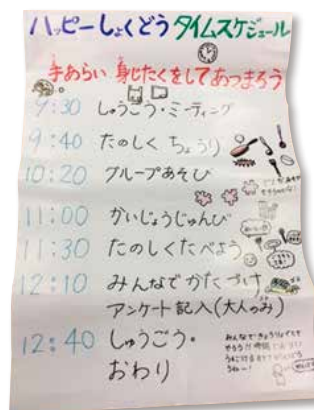 ハッピーしょくどう タイムスケジュール
手あらい 身じたくをしてあつまろう
9:30 しゅうごう・ミーティング
9:40 たのしく ちょうり
10:20 グループあそび
11:00 かいじょうじゅんび
11:30 たのしくたべよう
12:10 みんなでかたづけ
アンケート記入(大人のみ)
12:40 しゅうごう・
おわり